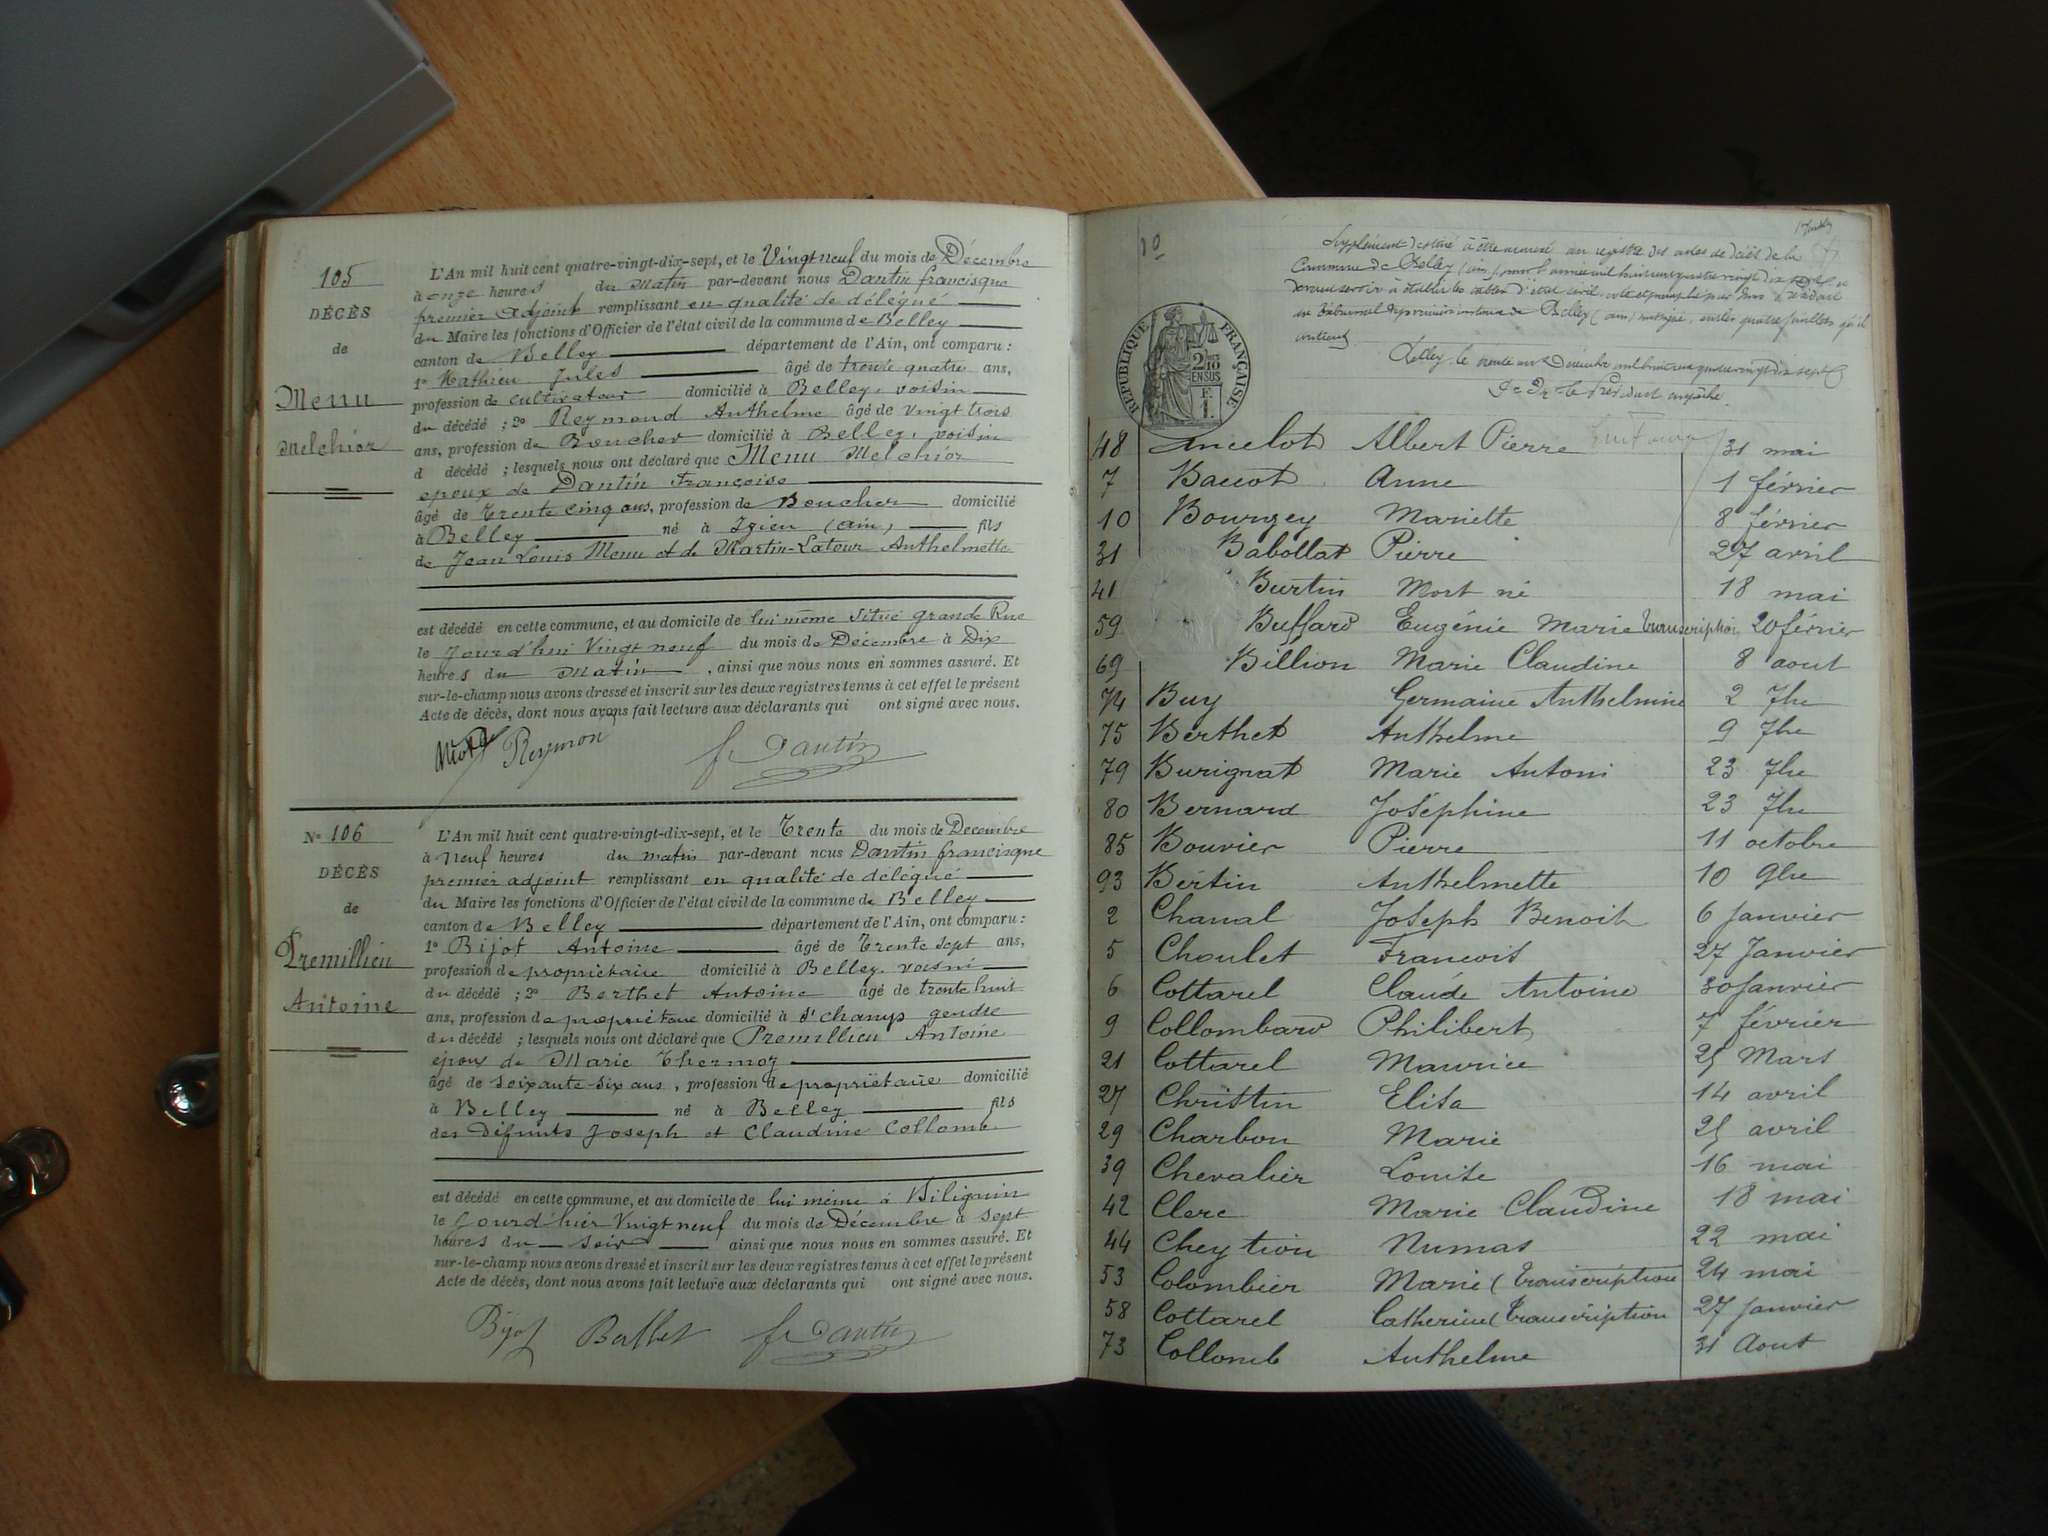 105
DÉCÈS
de
Menu
Melchior
L'An mil huit cent quatre-vingt-dix-sept, et le Vingt neuf du mois de Décembre
à onze heures du Matin par-devant nous Dantin francisque
premier Adjoint remplissant en qualité de délégué
du Maire les fonctions d'Officier de l'état civil de la commune de Belley
canton de Belley département de l'Ain, ont comparu :
1º Mathieu Jules âgé de trente quatre ans,
profession de cultivateur domicilié à Belley, voisin
du décédé ; 2º Reymond Anthelme âgé de vingt trois
ans, profession de Boucher domicilié à Belley, voisin
d décédé ; lesquels nous ont déclaré que Menu Melchior
epoux de Dantin Françoise
âgé de Trente cinq ans, profession de Boucher domicilié
à Belley né à Izieu (ain) fils
de Jean Louis Menu et de Martin-Latour Anthelmette
est décédé en cette commune, et au domicile de lui même situé grande Rue
le Jourd'hui Vingt neuf du mois de Décembre à Dix
heures du Matin, ainsi que nous nous en sommes assuré. Et
sur-le-champ nous avons dressé et inscrit sur les deux registres tenus à cet effet le présent
Acte de décès, dont nous avons fait lecture aux déclarants qui ont signé avec nous.
Reymon fr Dantin
Nº 106
DÉCÈS
de
Premillieu
Antoine
L'An mil huit cent quatre-vingt-dix-sept, et le Trente du mois de Decembre
à Neuf heures du matin par-devant nous Dantin francisque
premier adjoint remplissant en qualité de délégué
du Maire les fonctions d'Officier de l'état civil de la commune de Belley
canton de Belley département de l'Ain, ont comparu :
1º Bijot Antoine âgé de Trente sept ans,
profession de propriétaire domicilié à Belley. voisin
du décédé ; 2º Berthet Antoine âgé de trente huit
ans, profession de propriétaire domicilié à St champ gendre
du décédé ; lesquels nous ont déclaré que Premillieu Antoine
epoux de Marie Thermoz
âgé de soixante-six ans, profession de propriétaire domicilié
à Belley né à Belley fils
des défunts Joseph et Claudine Collomb
est décédé en cette commune, et au domicile de lui même à Bilignin
le Jourd'hier Vingt neuf du mois de Décembre à sept
heures du soir ainsi que nous nous en sommes assuré. Et
sur-le-champ nous avons dressé et inscrit sur les deux registres tenus à cet effet le présent
Acte de décès, dont nous avons fait lecture aux déclarants qui ont signé avec nous.
Bijot Berthet fr Dantin
1º
Supplément destiné à être annexé au registre des actes de décès de la
Commune de Belley (ain) pour l'année mil huit cent quatre vingt dix sept
Belley le trente un Décembre mil huit cent quatre vingt dix sept
RÉPUBLIQUE FRANÇAISE
2/10
EN SUS
F.
1.
48 Ancelot Albert Pierre 31 mai
7 Baccot Anne 1 février
10 Bourgey Mariette 8 février
31 Babollat Pierre 27 avril
41 Burtin Mort né 18 mai
59 Buffard Eugénie Marie Transcription 20 février
69 Billion Marie Claudine 8 aout
74 Buy Germaine Anthelmine 2 7bre
75 Berthet Anthelme 9 7bre
79 Burignat Marie Antoni 23 7bre
80 Bernard Joséphine 23 7bre
85 Bouvier Pierre 11 octobre
93 Bertin Anthelmette 10 9bre
2 Chanal Joseph Benoit 6 Janvier
5 Choulet Francois 27 Janvier
6 Cottarel Claude Antoine 30 Janvier
9 Collombard Philibert 7 février
21 Cottarel Maurice 25 Mars
27 Christin Elisa 14 avril
29 Charbon Marie 25 avril
39 Chevalier Louise 16 mai
42 Clerc Marie Claudine 18 mai
44 Cheytion Numas 22 mai
53 Colombier Marie (Transcription 24 mai
58 Cottarel Catherine (Transcription 27 Janvier
73 Collomb Anthelme 31 Aout